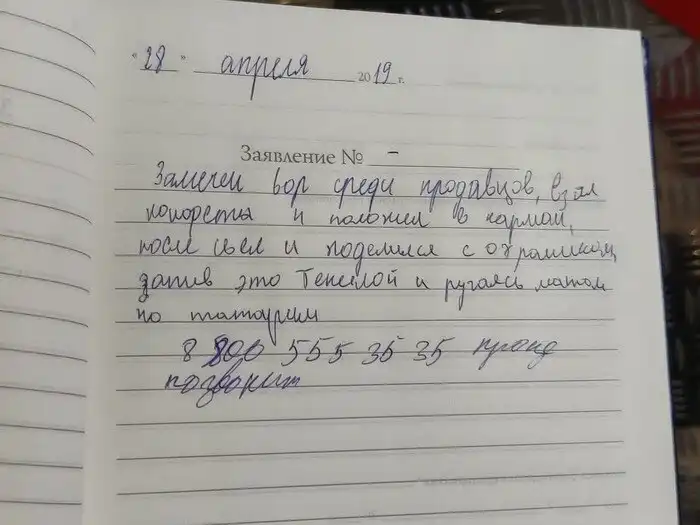 "28" апреля 2019 г.
Заявление № -
Замечен вор среди продавцов, взял
конфеты и положил в карман,
после съел и поделился с охранником,
запив это Текилой и ругаясь матом
по татарски
8 800 555 35 35 проще
позвонит